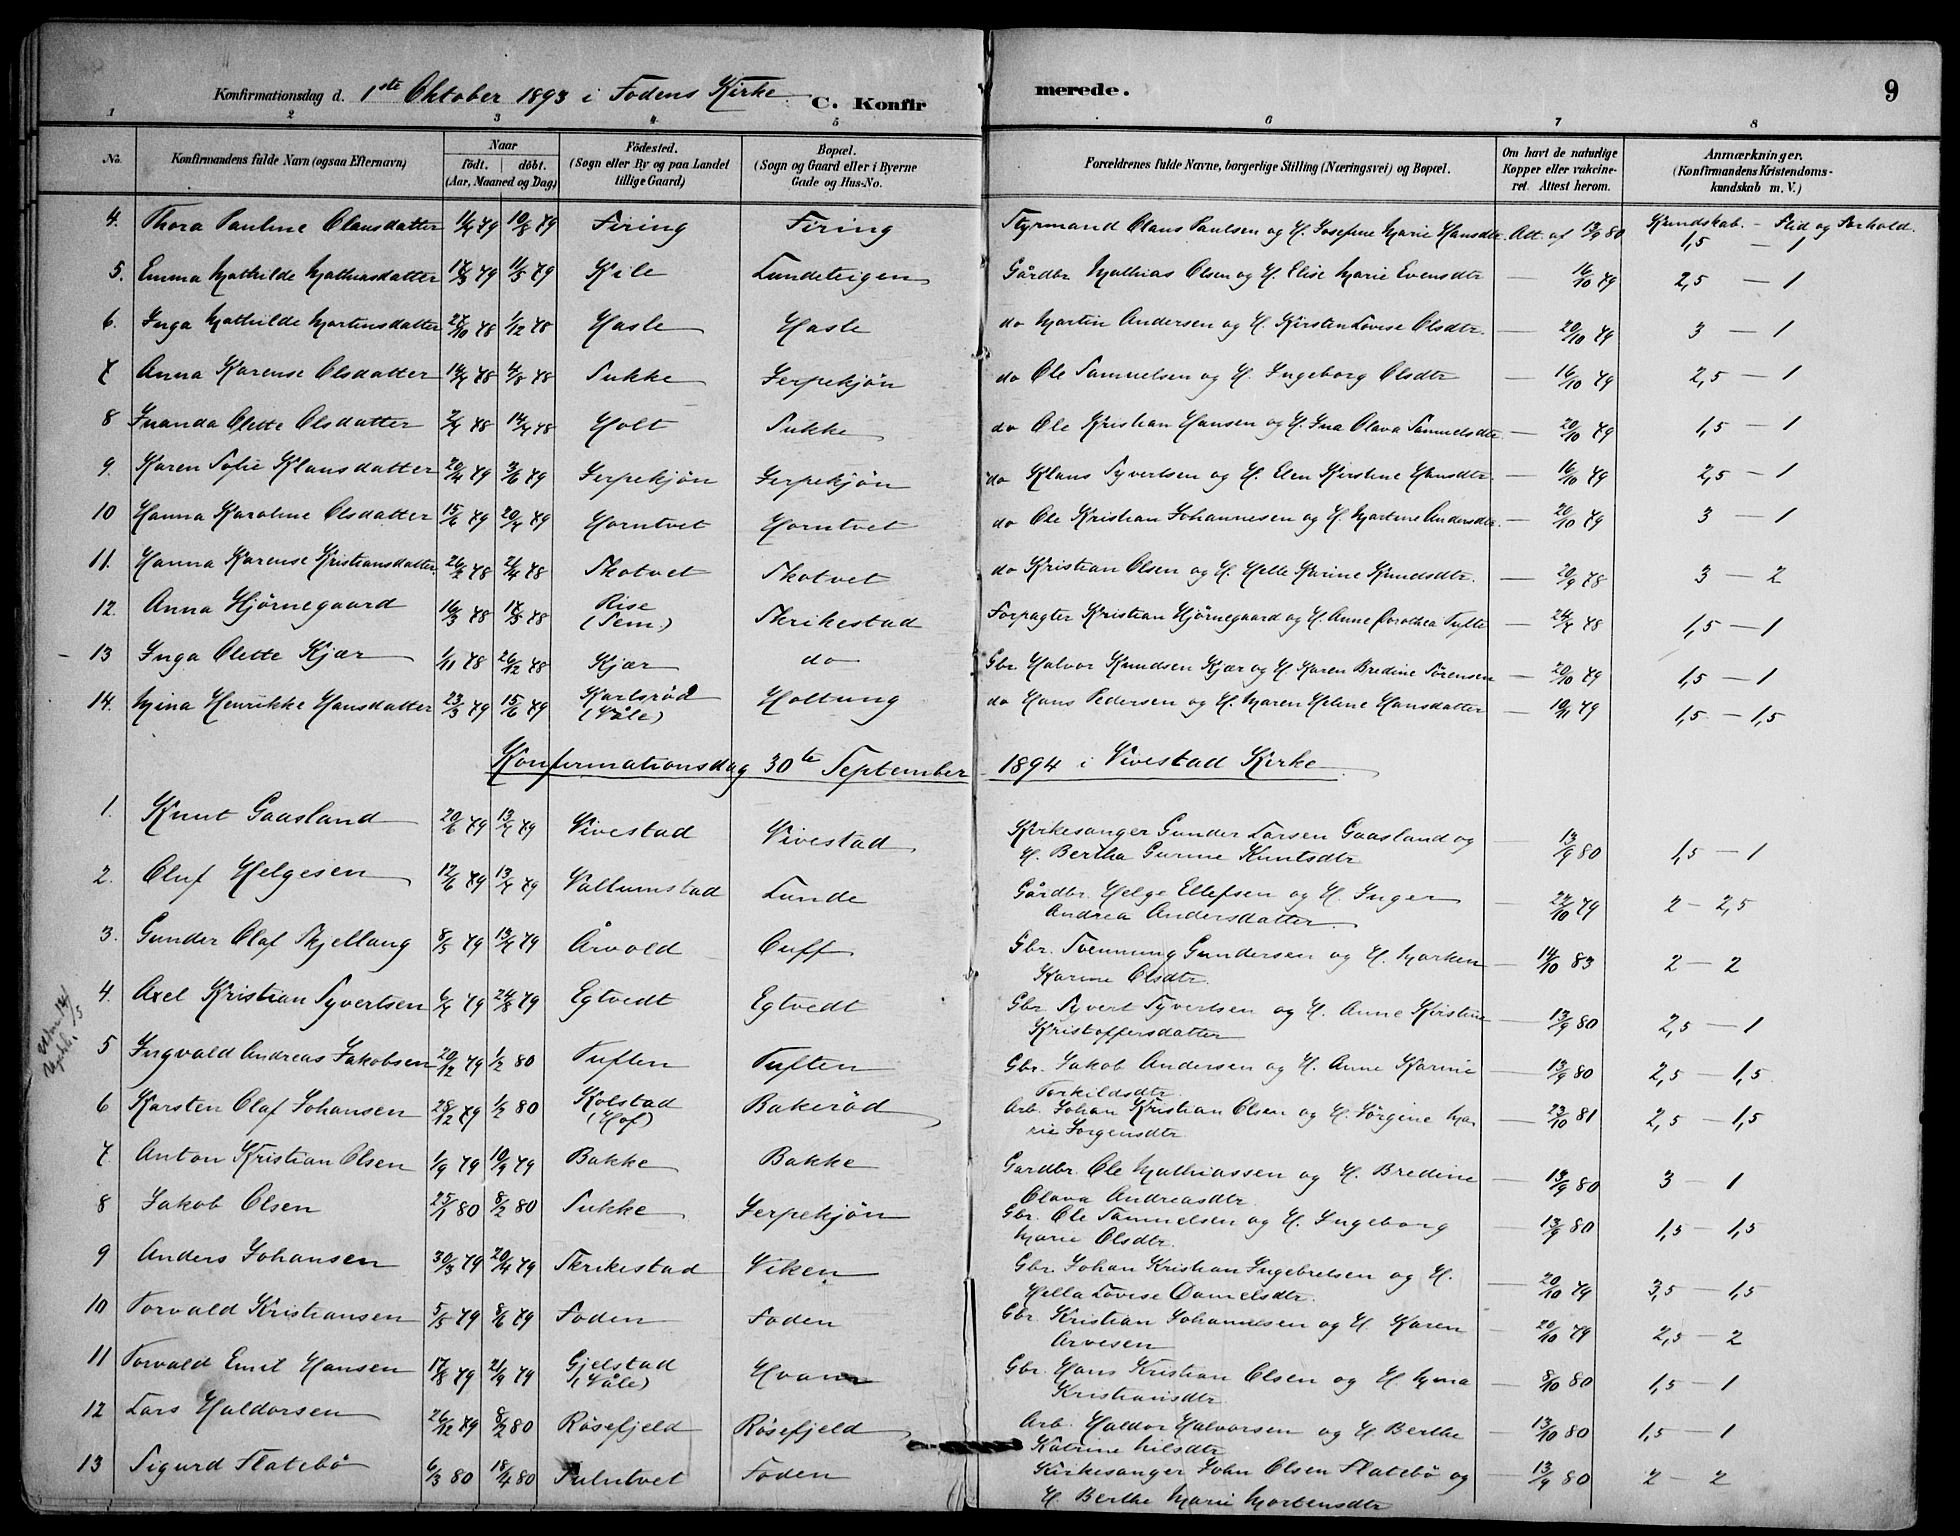 Konfirmationsdag d. 1ste Oktober 1893 i Fodens Kirke. C. Konfir merede. 9
1 2 3 4 5 6 7 8
No. Konfirmandens fulde Navn (ogsaa Efternavn) Naar födt. döbt. (Aar, Maaned og Dag) Födested. (Sogn eller By og paa Landet tillige Gaard) Bopæl. (Sogn og Gaard eller i Byerne Gade og Hus-No. Forældrenes fulde Navne, borgerlige Stilling (Næringsvei) og Bopæl. Om havt de naturlige Kopper eller vakcineret. Attest herom. Anmærkninger. (Konfirmandens Kristendomskundskab m. V.)
Kundskab. - Flid og Forhold.
4. Thora Pauline Olausdatter 79 10/8 79 Firing Firing Styrmand Olaus Paulsen og H. Josefine Marie Hansdtr. Att. af 13/9 80 1,5 — 1
5. Emma Mathilde Mathiasdatter 79 11/5 79 Kile Lundeteigen Gårdbr Mathias Olsen og H. Elise Marie Evensdtr — 16/10 79 2,5 — 1
6. Inga Mathilde Martinsdatter 27/10 78 1/12 78 Hasle Hasle do Martin Andersen og H. Kirsten Lovise Olsdtr. — 20/10 79 3 — 1
7 Anna Karense Olsdatter 78 4/8 78 Sukke Jerpekjøn do Ole Samuelsen og H. Ingeborg Olsdtr — 16/10 79 2,5 — 1
8 Juanda Olette Olsdatter 78 14/7 78 Holt Sukke do Ole Kristian Hansen og H. Ina Olava Samuelsdtr — 20/10 79 1,5 — 1
9. Karen Sofie Klausdatter 20/4 79 3/6 79 Jerpekjøn Jerpekjøn do Klaus Syvertsen og H. Elen Kirstine Hansdtr. — 16/10 79 2,5 — 1
10 Hanna Karoline Olsdatter 15/6 79 20/7 79 Horntvet Horntvet do Ole Kristian Johannesen og H. Martine Andersdtr. — 20/10 79 3 — 1
11. Hanna Karense Kristiansdatter. 26/2 78 2/4 78 Skotvet Skotvet do Kristian Olsen og H. Helle Karine Knudsdtr. — 20/9 78 3 — 2
12. Anna Hjørnegaard 16/3 78 78 Rise (Sem.) Skrikestad Forpagter Kristian Hjørnegaard og H. Anne Dorothea Tufte — 24/7 78 1,5 — 1
13 Inga Olette Kjær 1/11 78 26/12 78 Kjær do Gbr. Halvor Knudsen Kjær og H Karen Bredine Sørensen — 20/10 79 1,5 — 1
14. Mina Henrikke Hansdatter 23/3 79 15/6 79 Karlsrød (Våle) Holtung do Hans Pedersen og H. Maren Helene Hansdatter — 10/11 79 1,5 — 1,5
Konfirmationsdag 30te September 1894 i Vivestad Kirke
1. Knut Gaasland 20/6 79 13/7 79 Vivestad Vivestad Kirkesanger Gunder Larsen Gaasland og
H. Bertha Gurine Knutsdtr — 13/9 80 1,5 — 1
2. Oluf Helgesen 12/6 79 13/7 79 Vallumstad Lunde Gårdbr. Helge Ellefsen og H. Inger
Andrea Andersdatter — 27/10 79 2 — 2,5
3. Gunder Olaf Skjellaug 8/5 79 13/7 79 Årvold Cuff Gbr. Svennung Gundersen og H. Marken
Karine Olsdtr. — 14/10 83 2 — 2
4. Axel Kristian Syvertsen 6/7 79 24/8 79 Egtvedt Egtvedt Gbr Syvert Syvertsen og H. Anne Kirstine
Kristoffersdatter — 13/9 80 2,5 — 1
5 Ingvald Andreas Jakobsen 20/12 79 1/2 80 Tuften Tuften Gbr. Jakob Andersen og H. Anne Karine
Torkildsdtr — 13/9 80 2,5 — 1,5
6 Karsten Olaf Johansen 28/12 79 1/2 80 Kolstad (Hof) Bakerød Arb. Johan Kristian Olsen og H. Jørgine Ma
rie Jorgensdtr — 23/10 81 2,5 — 1,5
7. Anton Kristian Olsen 1/9 79 10/9 79 Bakke Bakke Gardbr. Ole Mathiassen og H. Bredine
Olava Andreasdtr — 13/9 80 3 — 1
8 Jakob Olsen 25/1 80 8/2 80 Sukke Jerpekjøn Gbr. Ole Samuelsen og H. Ingeborg
Marie Olsdtr. — 13/9 80 1,5 — 1,5
9 Anders Johansen 30/3 79 20/4 79 Skrikestad Viken Gbr. Johan Kristian Ingebretsen og H.
Hella Lovise Danielsdtr. — 20/10 79 3,5 — 1,5
10 Torvald Kristiansen 5/5 79 8/6 79 Foden Foden Gbr. Kristian Johannesen og H. Karen
Arvesen — 20/10 79 2,5 — 2
11 Torvald Emil Hansen 17/8 79 21/9 79 Gjelstad (Våle) Gbr. Hans Kristian Olsen og H. Mina
Kristiansdtr — 8/10 80 1,5 — 1
12 Lars Haldorsen 26/12 79 8/2 80 Røsefjeld Røsefjeld Arb. Haldor Halvorsen og H Berthe
Katrine Nilsdtr — 13/10 80 1,5 — 1
13 Sigurd Flatebø 6/3 80 18/4 80 Sulutvet Foden Kirkesanger John Olsen Flatebø og
H Berthe Marie Mortensdtr — 13/9 80 2 — 2